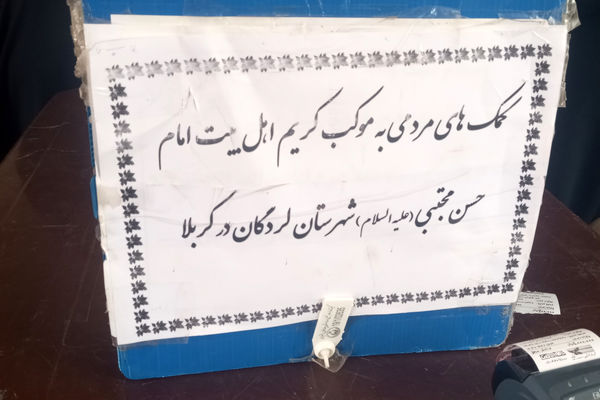 کمک های مردمی به موکب کریم اهل بیت امام
حسن مجتبی (علیه السلام) شهرستان لردگان در کربلا